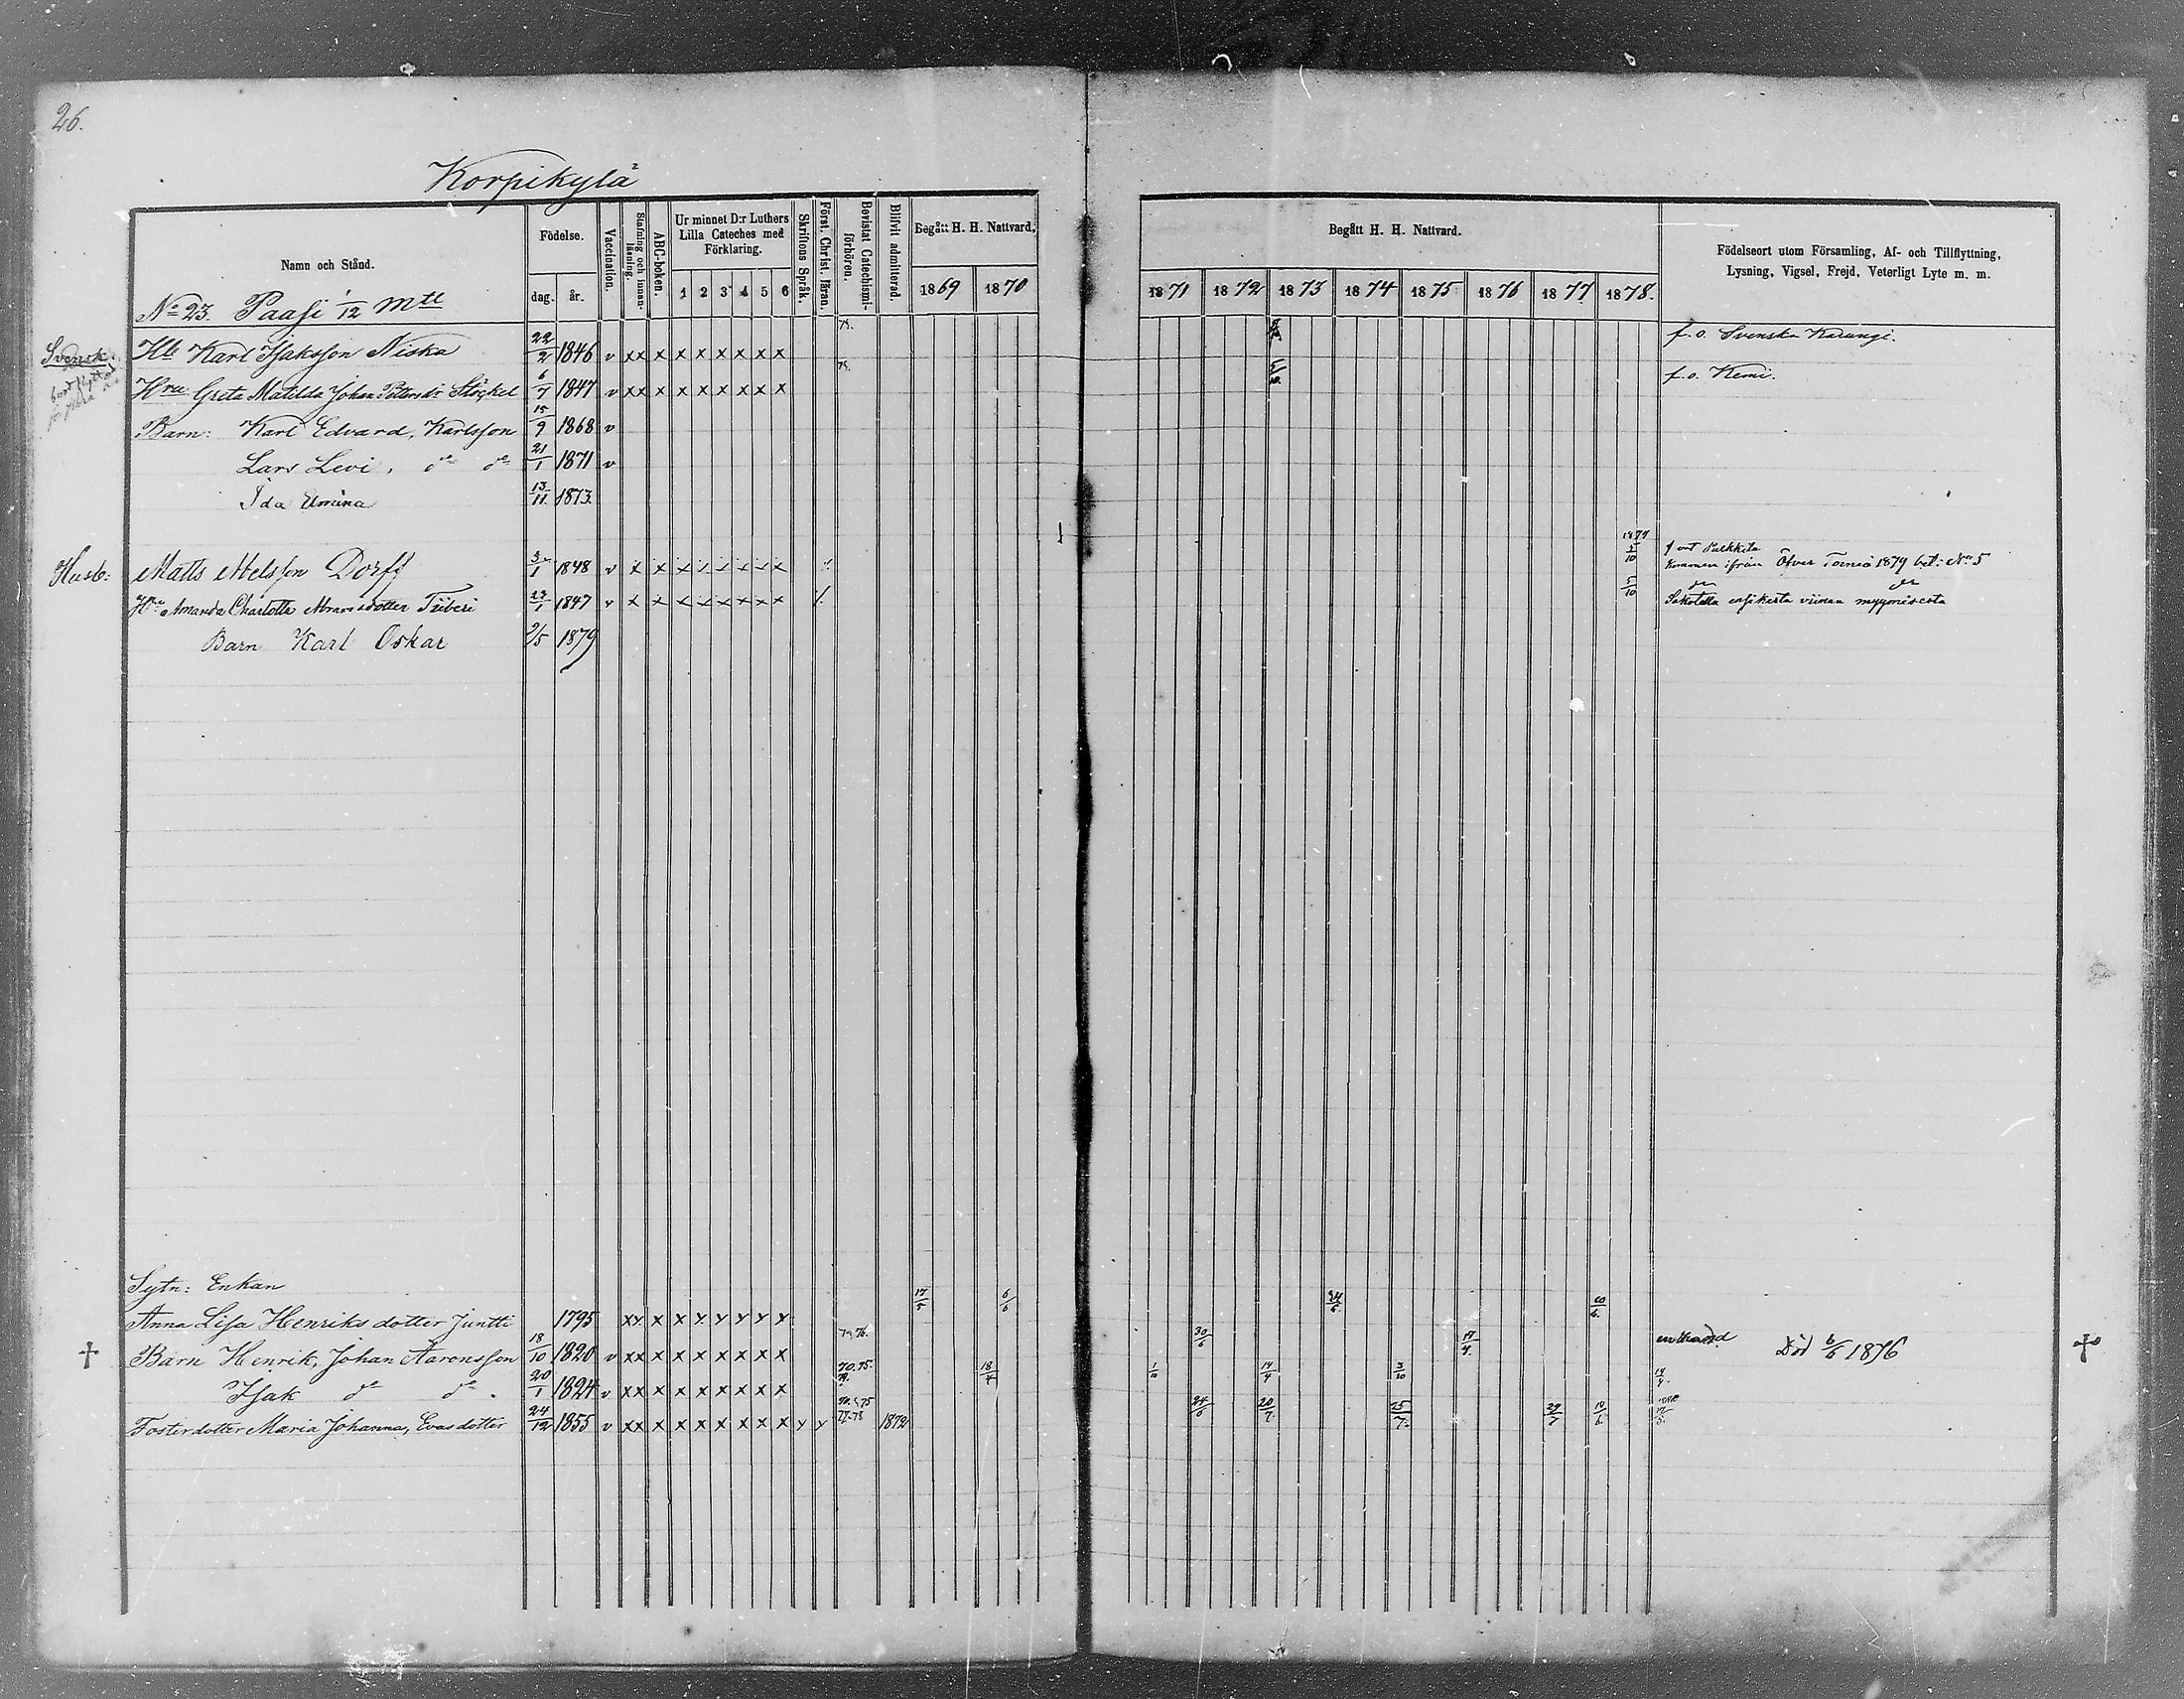 26.
Korpikylä
Namn och Stånd.
Födelse.
dag.
år.
Vaccination.
Stafning och innan-läsning.
ABC-boken.
Ur minnet D:r Luthers Lilla Cateches med Förklaring.
1 2 3 4 5 6
Skriftens Språk.
Först. Christ. läran.
Bevistat Catechismi-förhören.
Blifvit admitterad.
Begått H. H. Nattvard.
1869 1870
Begått H. H. Nattvard.
1871 1872 1873 1874 1875 1876 1877 1878.
Födelseort utom Församling, Af- och Tillflyttning,
Lysning, Vigsel, Frejd, Veterligt Lyte m. m.
No 23. Paasi 1/12 Mtl
Svensk. Hb Karl Isaksson Niska 22/2 1846 v xx x x x x x x x 5/10 f. o. Svenska Karungi.
Hru Greta Matilda Johan Petters dr Stöckel 6/7 1847 v xx x x x x x x x 5/10 f. o. Kemi.
Barn: Karl Edvard, Karlsson 15/9 1868 v
Lars Levi, do do 21/1 1871 v
Ida 13/11 1873.
1879
Husb: Matts Abelsson 3/1 1848 v x x x x x x x x 5/10 Kommen ifrån Öfver Torneå 1879 bet: No 5
Hru Amanda Charlotta Abramsdotter 23/1 1847 v x x x x x x x x 5/10 do do
Sakotettu ensikerta viinan myymisestä
Barn Karl Oskar 2/5 1879
Sytn: Enkan
Anna Lisa Henriks dotter Juntti 1795 xx x x x x x x x 17/5 6/6 24/6 10/6
† Barn Henrik, Johan Aaronsson 18/10 1820 v xx x x x x x x x 30/6 17/4. Död 6/6 1876 †
Isak do do. 20/1 1824 v xx x x x x x x x 70. 75. 18/4 1/10 14/4 3/10 14/4.
Fosterdotter Maria Johanna, Evasdotter 24/12 1855 v xx x x x x x x x x x 77-78 1872 24/6 20/7 25/7. 29/7 10/6